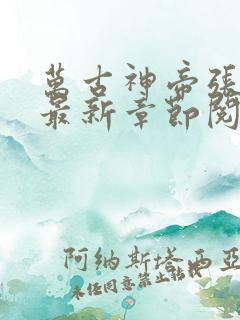 萬古神帝張
最新章節閱
阿納斯塔西亞
未經同意禁止轉載